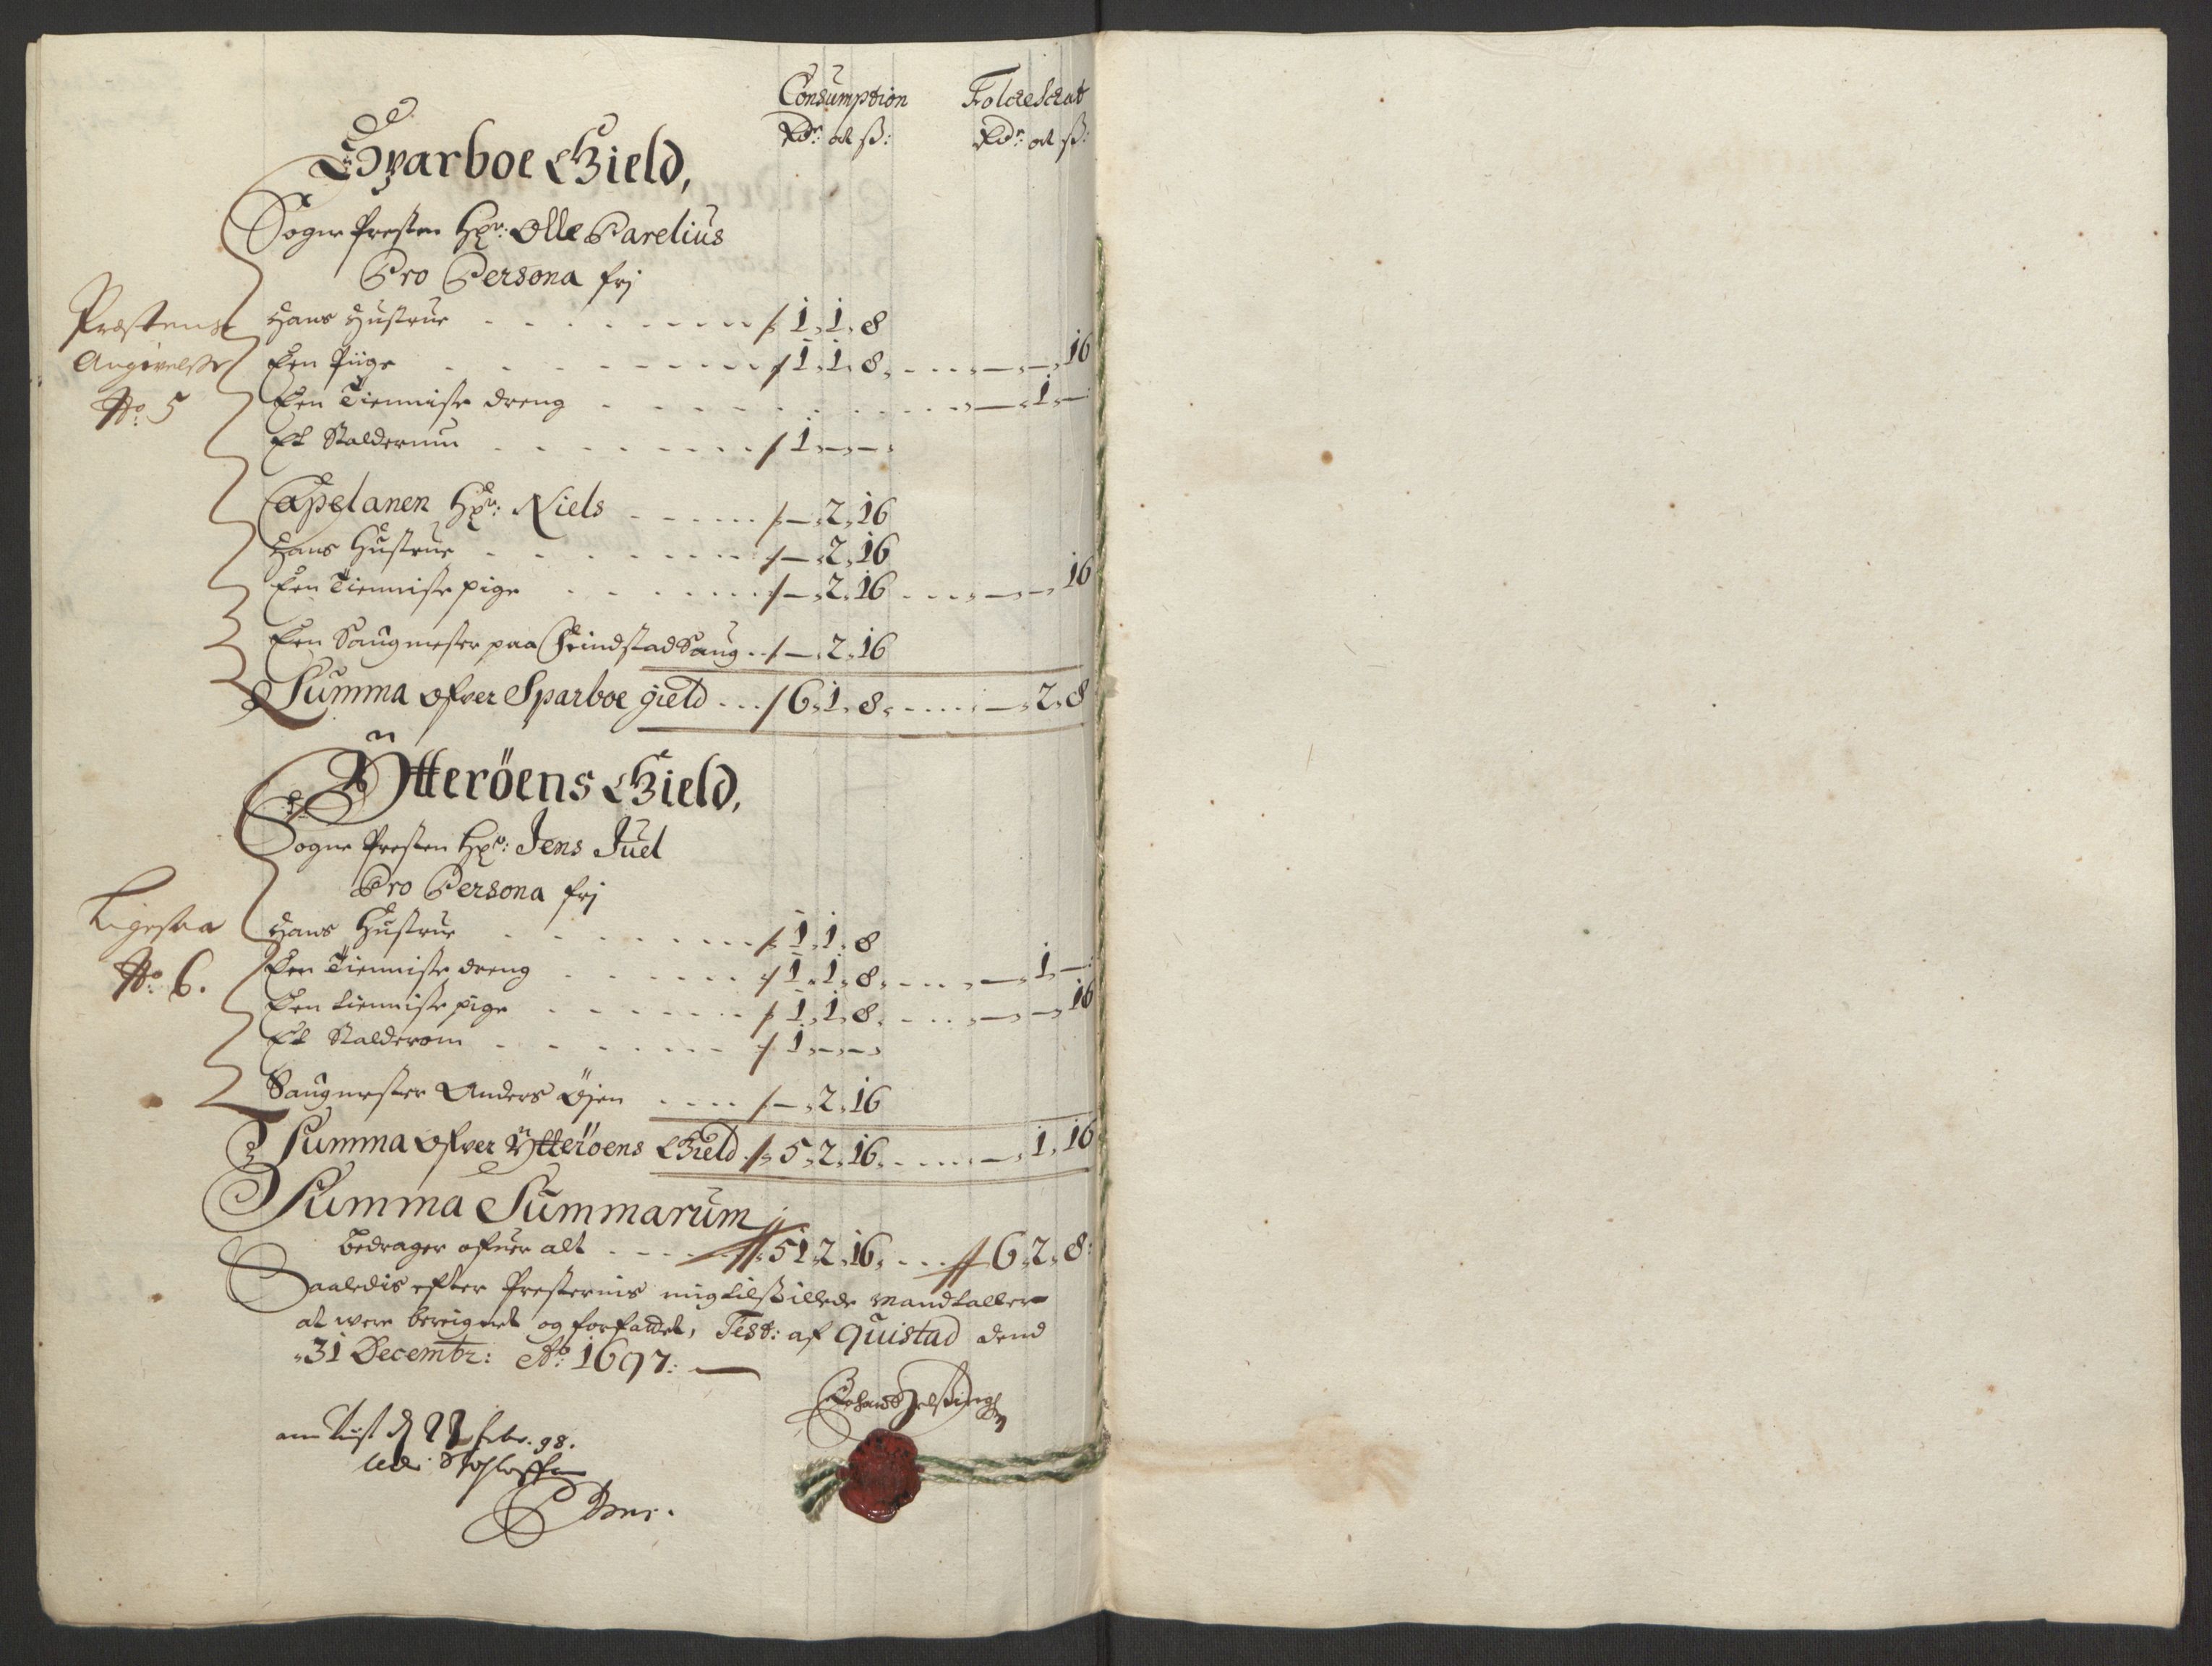 Consumption Folcheschat
Rdr: ort ß: Rdr: ort ß:
Sparboe Gield,
Sogne Presten Hr: Olle Parelius
Pro Persona frj
Prestens Angivelse No. 5
Hans Hustrue - - - 1, 1, 8
Een Piige - - - 1, 1, 8, - - - — , — , 16
Een Tienniste dreng - - - — , 1, —
Et Ralderum - - - 1, — , — ,
Capelanen Hr: Niels - - - — , 2, 16
Hans Hustrue - - - — , 2, 16
Een Tienniste pige - - - — , 2, 16 - - - — , — , 16
Een Saugmester paa Heindstad Saug - - — , 2, 16
Summa ofver Sparboe gield - - - 6, 1, 8, - - - — , 2, 8
Ytteröens Gield,
Sogne Presten Hr: Jens Juel
Pro Persona frj
Ligesaa No: 6.
Hans Hustrue - - - 1, 1, 8
Een Tienniste dreng - - - 1, 1, 8, - - - — , 1, —
Een tienniste pige - - - 1, 1, 8, - - - — , — , 16
Et Ralderom - - - 1, — , — ,
Saugmester Anders Öjen - - - — , 2, 16
Summa ofver Ytteröens Gield 5, 2, 16, - - - — , 1, 16
Summa Summarum
bedrager ofuer alt - - - 51, 2, 16, - - - 6, 2, 8
Saaledis efter Presternis mig tilstillede Mandtaller
at were bereignet og forfattet, Test: af Quistad dend
31 Decembr: Ao: 1697: —
febr. 98.